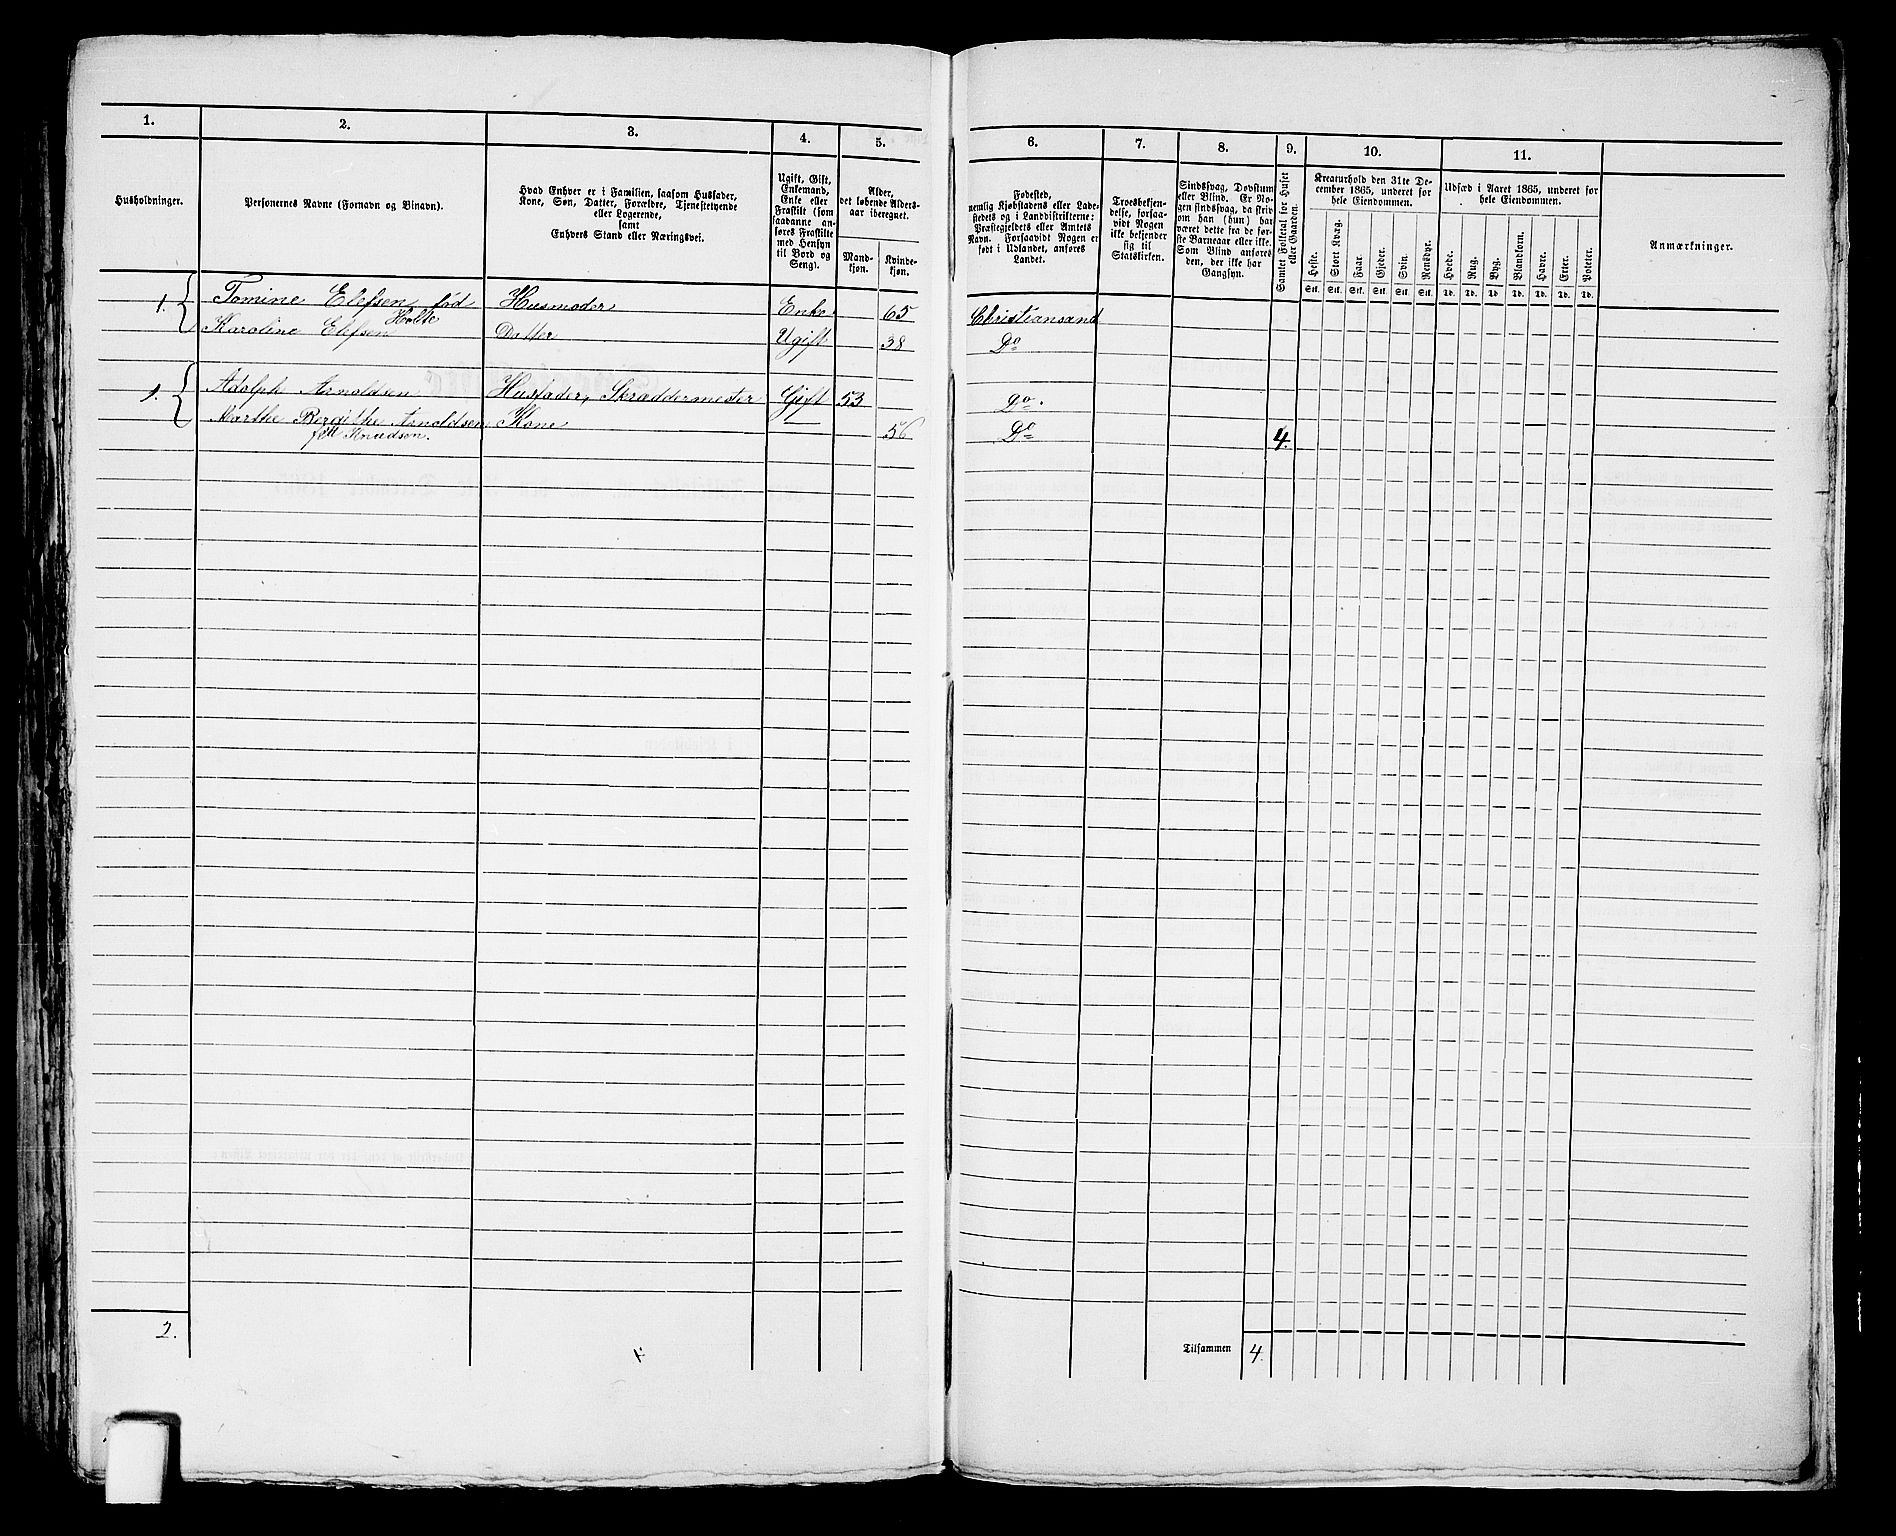 1. 2. 3. 4. 5. 6. 7. 8. 9. 10. 11.
Husholdninger.
Personernes Navne (Fornavn og Binavn).
Hvad Enhver er i Familien, saasom Husfader,
Kone, Søn, Datter, Forældre, Tjenestetyende
eller Logerende,
samt
Enhvers Stand eller Næringsvei.
Ugift, Gift,
Enkemand,
Enke eller
Fraskilt (som
saadanne an-
føres Fraskilte
med Hensyn
til Bord og
Seng).
Alder,
det løbende Alders-
aar iberegnet.
Mand-
kjøn.
Kvinde-
kjøn.
Fødested,
nemlig Kjøbstadens eller Lade-
stedets og i Landdistrikterne:
Præstegjeldets eller Amtets
Navn. Forsaavidt Nogen er
født i Udlandet, anføres
Landet.
Troesbekjen-
delse, forsaa-
vidt Nogen
ikke bekjender
sig til
Statskirken.
Sindssvag, Døvstum
eller Blind. Er No-
gen sindssvag, da skriv
om han (hun) har
været dette fra de før-
ste Barneaar eller ikke.
Som Blind anføres
den, der ikke har
Gangsyn.
Samlet Folketal for Huset
eller Gaarden.
Kreaturhold den 31te De-
cember 1865, underet for
hele Eiendommen.
Heste. Stort Kvæg. Faar. Gjeder. Svin. Rensdyr.
Stk. Stk. Stk. Stk. Stk. Stk.
Udsæd i Aaret 1865, underet for
hele Eiendommen.
Hvede. Rug. Byg. Blandkorn. Havre. Erter. Poteter.
Td. Td. Td. Td. Td. Td. Td.
Anmærkninger.
1. Tomine Elefsen fød Husmoder Enke 65 Christiansand
Holte
Karoline Elefsen Datter Ugift 38 Do
1. Adolph Arnoldsen Husfader, Skræddermester Gift 53 Do.
Marthe Birgithe Arnoldsen Kone — 56 Do 4.
Knudsen.
2. Tilsammen 4.